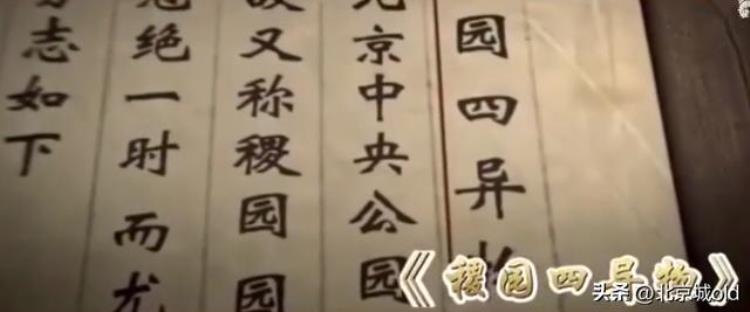 园四异
北京中央公园
故又称稷园园
冠绝一时而尤
志如下
《稷园四异物》
头条@北京城old